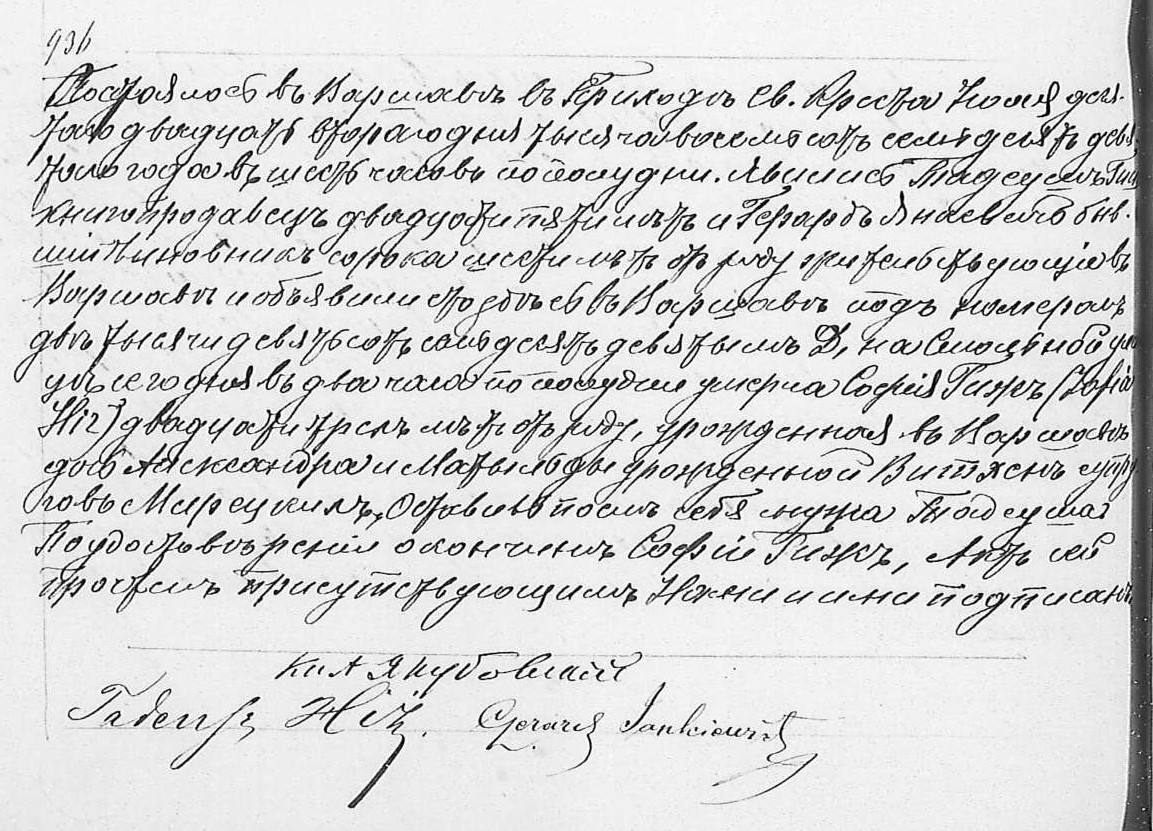 936
Состоялось въ Варшавѣ въ Приходѣ Св. Креста Іюля деся-
таго двадцать втораго дня тысяча восемьсотъ семьдесятъ девя
таго года въ шесть часовъ пополудни. Явились Тадеушъ Гиж
книгопродавецъ двадцати пяти лѣтъ и Герардъ быв-
шій чиновникъ сорока шести лѣтъ отъ роду жительствующіе въ
Варшавѣ и объявили что здѣсь въ Варшавѣ подъ номеромъ
двѣ тысячи девятьсотъ семьдесятъ девятымъ Д, на ули
цѣ сегодня въ два часа пополудни умерла Софія Гижъ (Zofia
Hiż) двадцати трехъ лѣтъ отъ роду, урожденная въ Варшавѣ
дочь Александра и Матыльды урожденной супру
говъ Мирецкихъ, Оставивъ послѣ себя мужа Тадеуша
По удостовѣреніи о кончинѣ Софіи Гижъ, Актъ сей
прочтенъ присутствующимъ Нами и ими подписанъ
Кс. А Якубовскій
Tadeusz Hiż. Gerard Jankiewicz